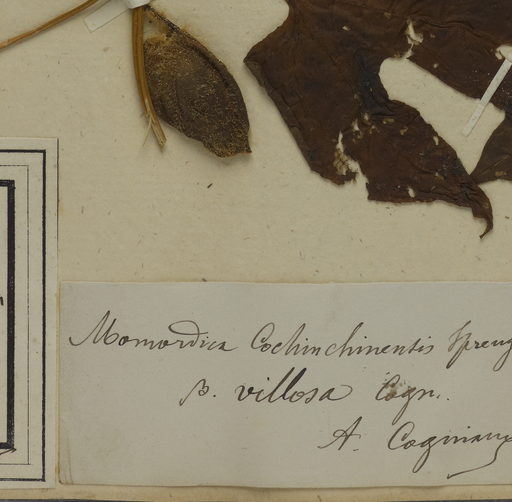 Momordica Cochinchinensis Spreng
β. villosa Cogn.
A. Cogniaux